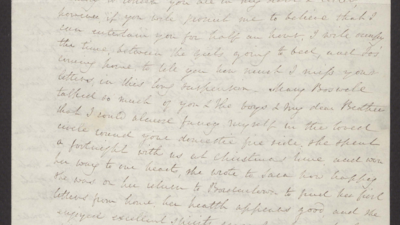 to which you are in my
however if you will permit me to believe that I
can entertain you for half an hour, I will occupy
the time, between the girls going to bed, and
coming home to tell you how much I miss your
letters, in this long suspension. Mary
talked so much of you & the boys & my dear Brother
that I could almost fancy myself in the loved
circle round your domestic fire side, she spent
a fortnight with us at Christmas time and won
her way to our hearts, she wrote to Sara how happy
she was on her return to to find her first
letters from home, her health appears good and she
enjoyed excellent spirits